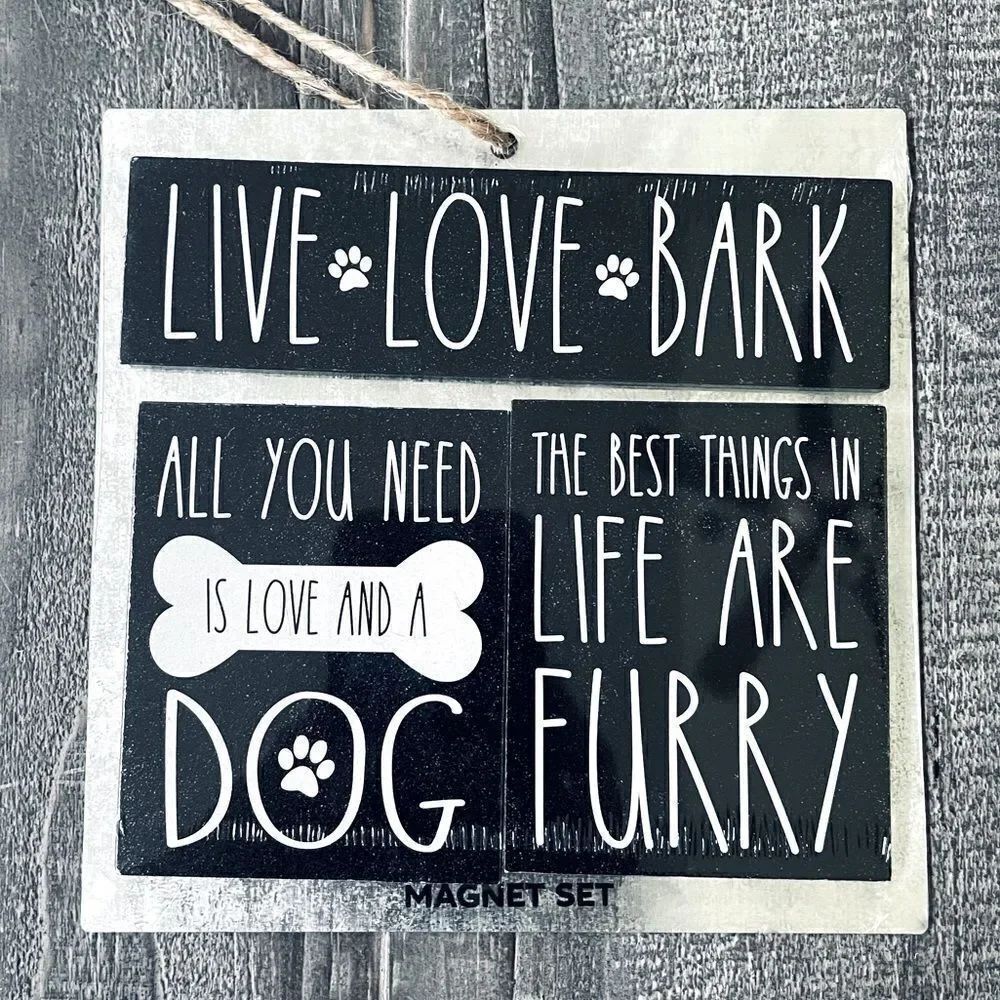 LIVE LOVE BARK
ALL YOU NEED
IS LOVE AND A
DOG
THE BEST THINGS IN
LIFE ARE
FURRY
MAGNET SET